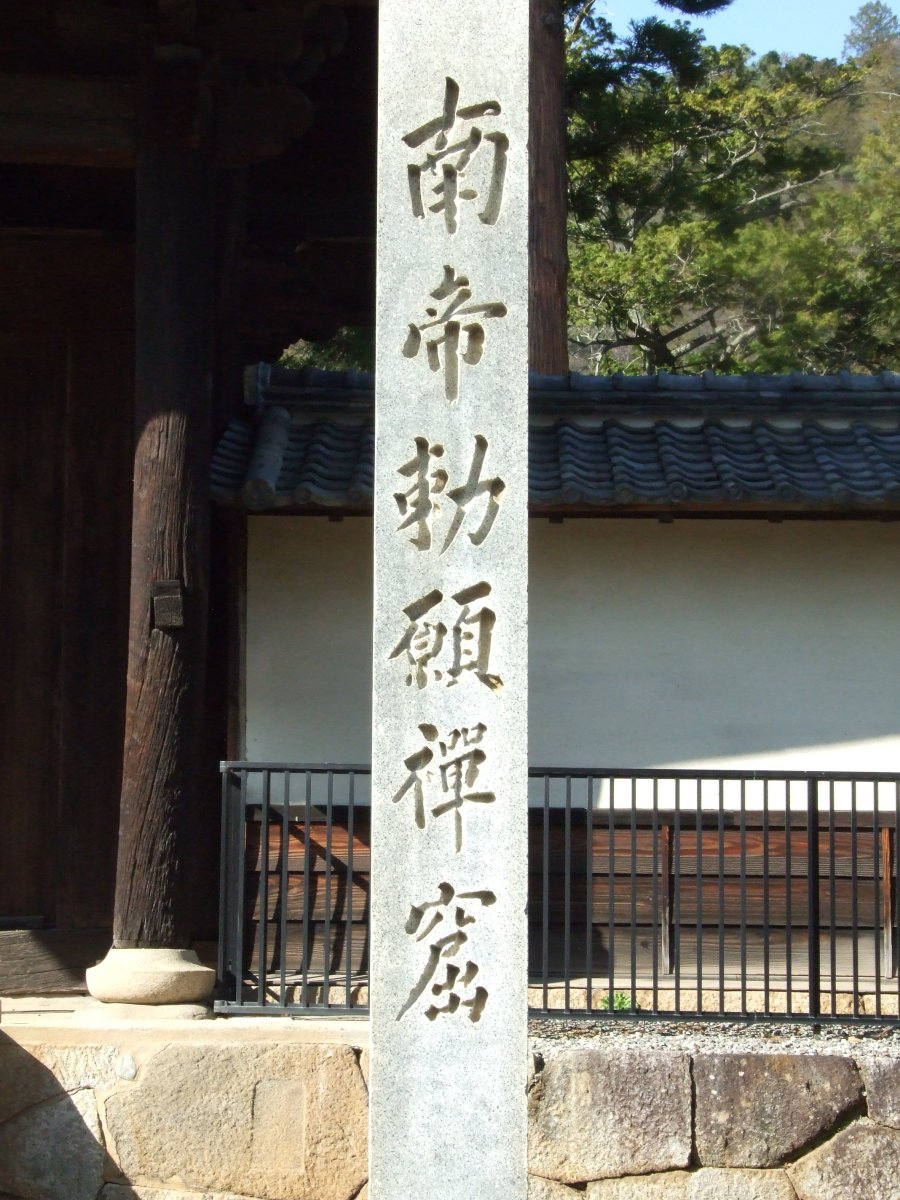 南帝勅願禪窟